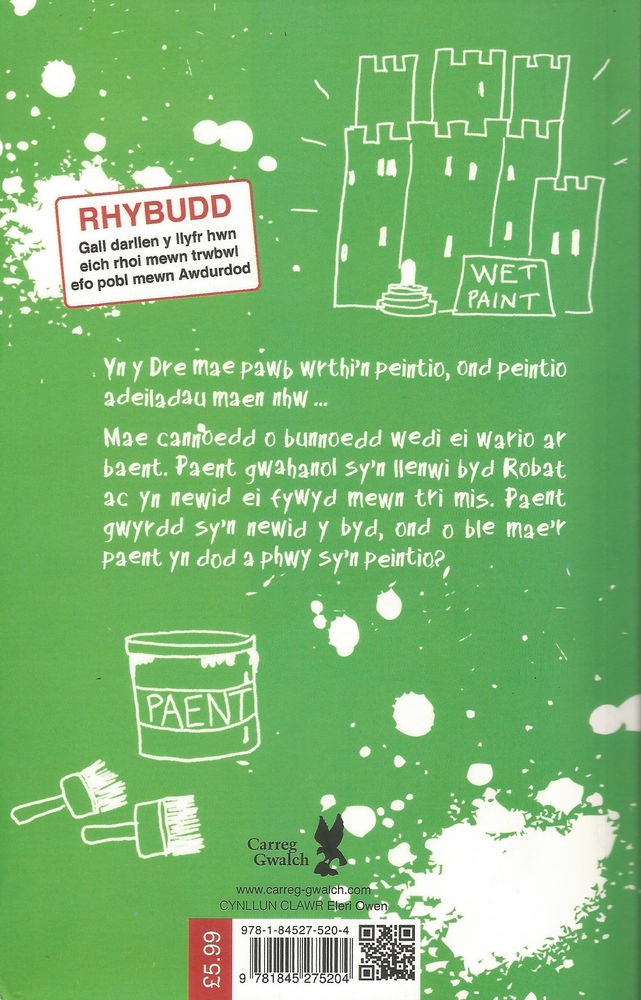 RHYBUDD
Gall darllen y llyfr hwn
eich rhoi mewn trwbwl
efo pobl mewn Awdurdod
WET
PAINT
Yn y Dre mae pawb wrthi'n peintio, ond peintio
adeiladau maen nhw ...
Mae cannoedd o bunnoedd wedi ei wario ar
baent. Paent gwahanol sy'n llenwi byd Robat
ac yn newid ei fywyd mewn tri mis. Paent
gwyrdd sy'n newid y byd, ond o ble mae'r
paent yn dod a phwy sy'n peintio?
PAENT
Carreg
Gwalch
www.carreg-gwalch.com
CYNLLUN CLAWR Eleri Owen
£5.99
978-1-84527-520-4
9 781845 275204